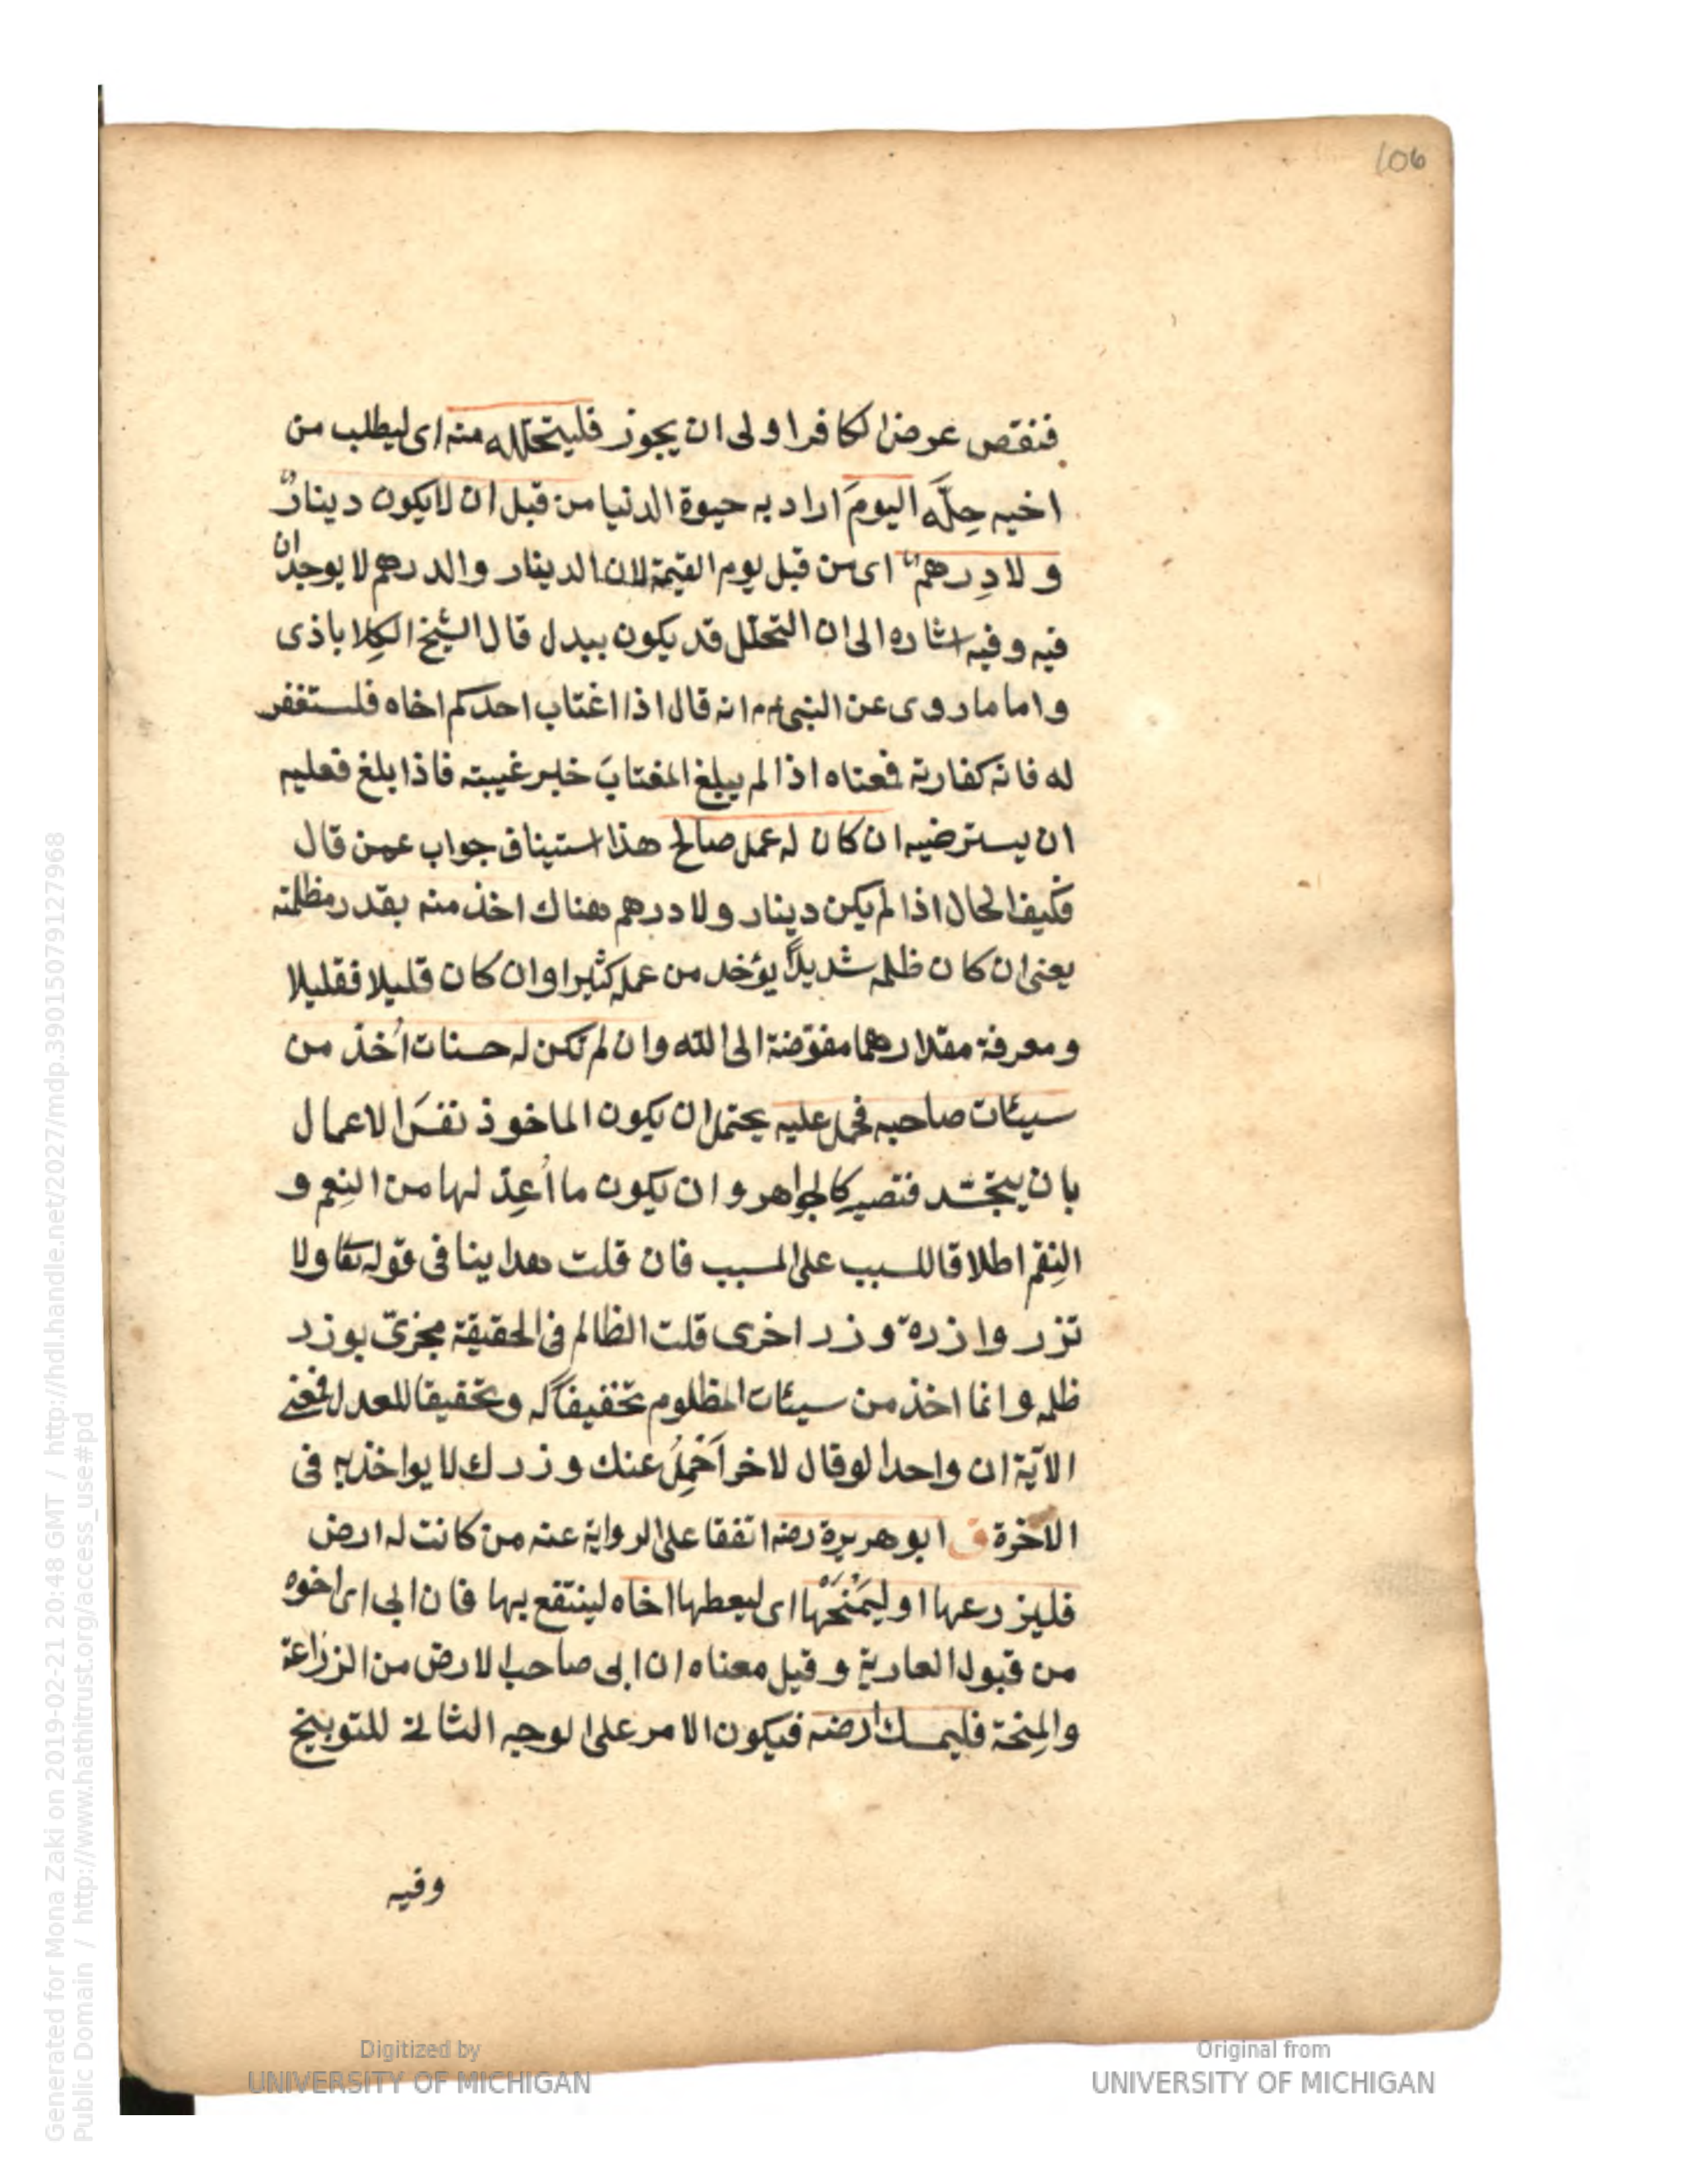 106
فنقص عرض الكافر اولى ان يجوز فليتحلله منه اى ليطلب من
اخيه حِلَّه اليومَ اراد به حيوة الدنيا من قبل ان لايكون دينارٌ
ولا دِرهمٌ اى من قبل يوم القيمة لان الدينار والدرهم لا يوجدان
فيه وفيه اشاره الى ان التحلل قد يكون ببدل قال الشيخ الكلاباذى
واما ما روى عن النبى عم انه قال اذا اغتاب احدكم اخاه فلستغفر
له فانه كفارته فمعناه اذا لم يبلغ المغتابَ خبر غيبته فاذا بلغ فعليه
ان يسترضيه ان كان له عمل صالح هذا استيناف جواب عمن قال
فكيف الحال اذا لم يكن دينار ولا درهم هناك اخذ منه بقدر مظلمته
يعنى ان كان ظلمه شديدًا يؤخد من عمله كثيرا وان كان قليلا فقليلا
ومعرفة مقدارهما مفوّضة الى الله وان لم تكن له حسنات اُخذ من
سيئات صاحبه فحمل عليه يحتمل ان يكون الماخوذ نفسَ الاعمال
بان يتجسّد فتصير كالجواهر وان يكون ما اُعِدّ لها من النِعم و
النِقم اطلاقا للسبب على المسبب فان قلت هدا ينافى قوله تعا ولا
تزر وازرة وزر اخرى قلت الظالم فى الحقيقة مجزىّ بوزر
ظلمه وانما اخذ من سيئات المظلوم تخفيفًا له وتحقيقا للعدل فمعنى
الآية ان واحدا لو قال لاخر اَحْمِلُ عنك وزرك لا يواخذ به فى
الاخرة ق ابو هريرة رضه اتفقا على الرواية عنه من كانت له ارض
فليزرعها او ليَمْنَحْها اى ليعطها اخاه لينتفع بها فان ابى اى اخوه
من قبول العارية وقيل معناه ان ابى صاحب الارض من الزراعة
والمِنحة فليمسك ارضه فيكون الامر على الوجه الثانى للتوبيخ
وفيه
Digitized by
UNIVERSITY OF MICHIGAN
Original from
UNIVERSITY OF MICHIGAN
Generated for Mona Zaki on 2019-02-21 20:48 GMT / http://hdl.handle.net/2027/mdp.39015079127968
Public Domain / http://www.hathitrust.org/access_use#pd